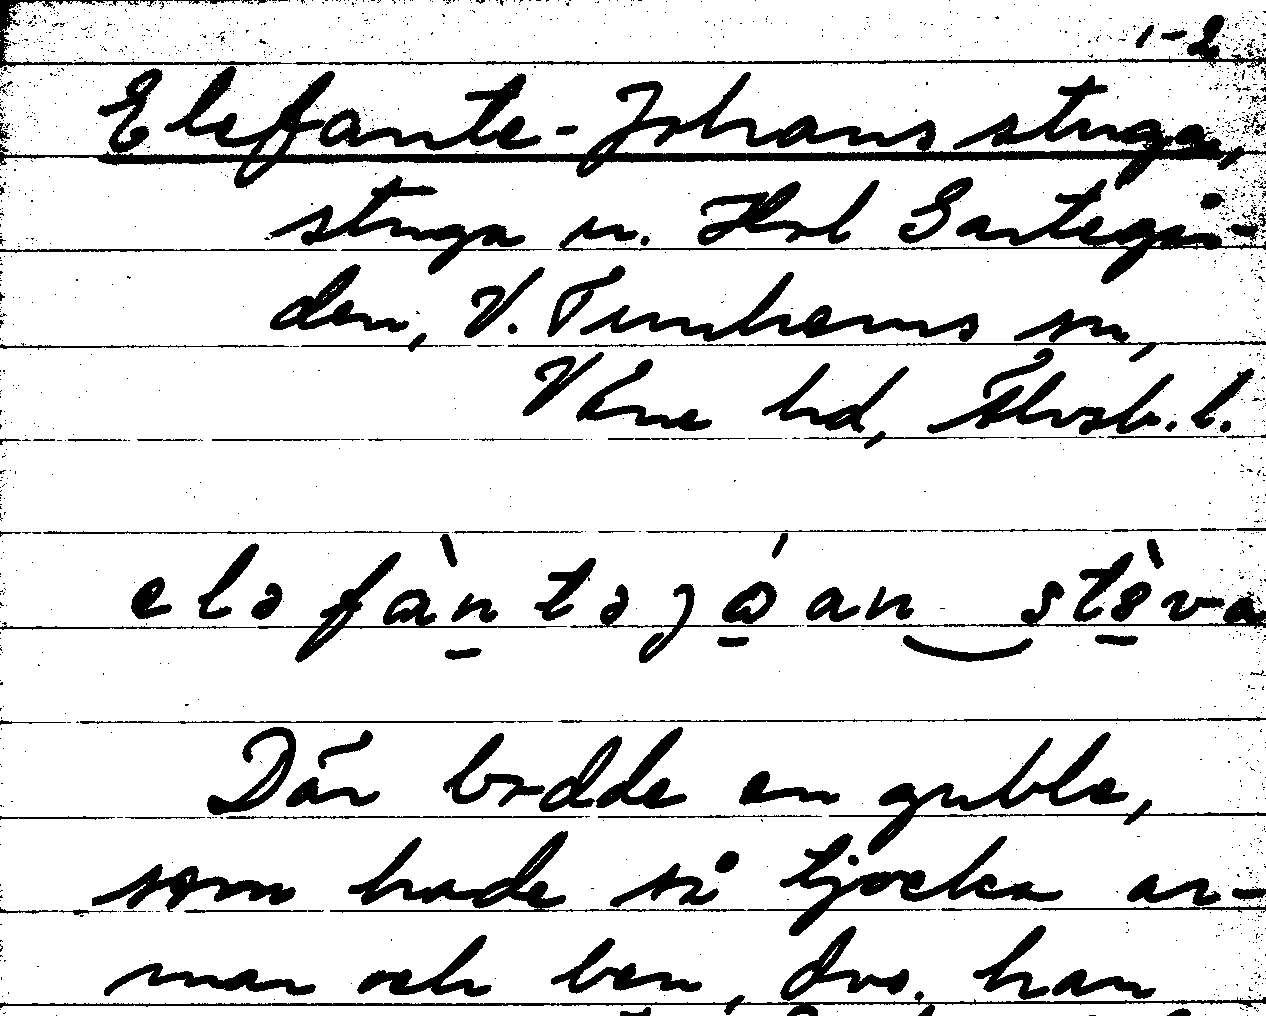 1-2
Elefante-Johans stuga,
stuga u. Hol Gastegår-
den, V. Tunhems sn,
Väne hd, Älvsb. l.
eləfàntəjóan stèva
Där bodde en gubbe,
som hade så tjocka ar-
mar och ben, dvs. han